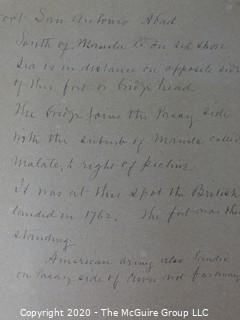 Fort San Antonio Abad
South of Manila & on sea shore
Sea is in distance on opposite side
of this fort or bridge head
The bridge joins the Pasay side
with the suburb of Manila called
Malate, to right of picture
It was at this spot the British
landed in 1762. The fort was then
standing
American army also
on Pasay side of river not far away
Copyright 2020 - The McGuire Group LLC